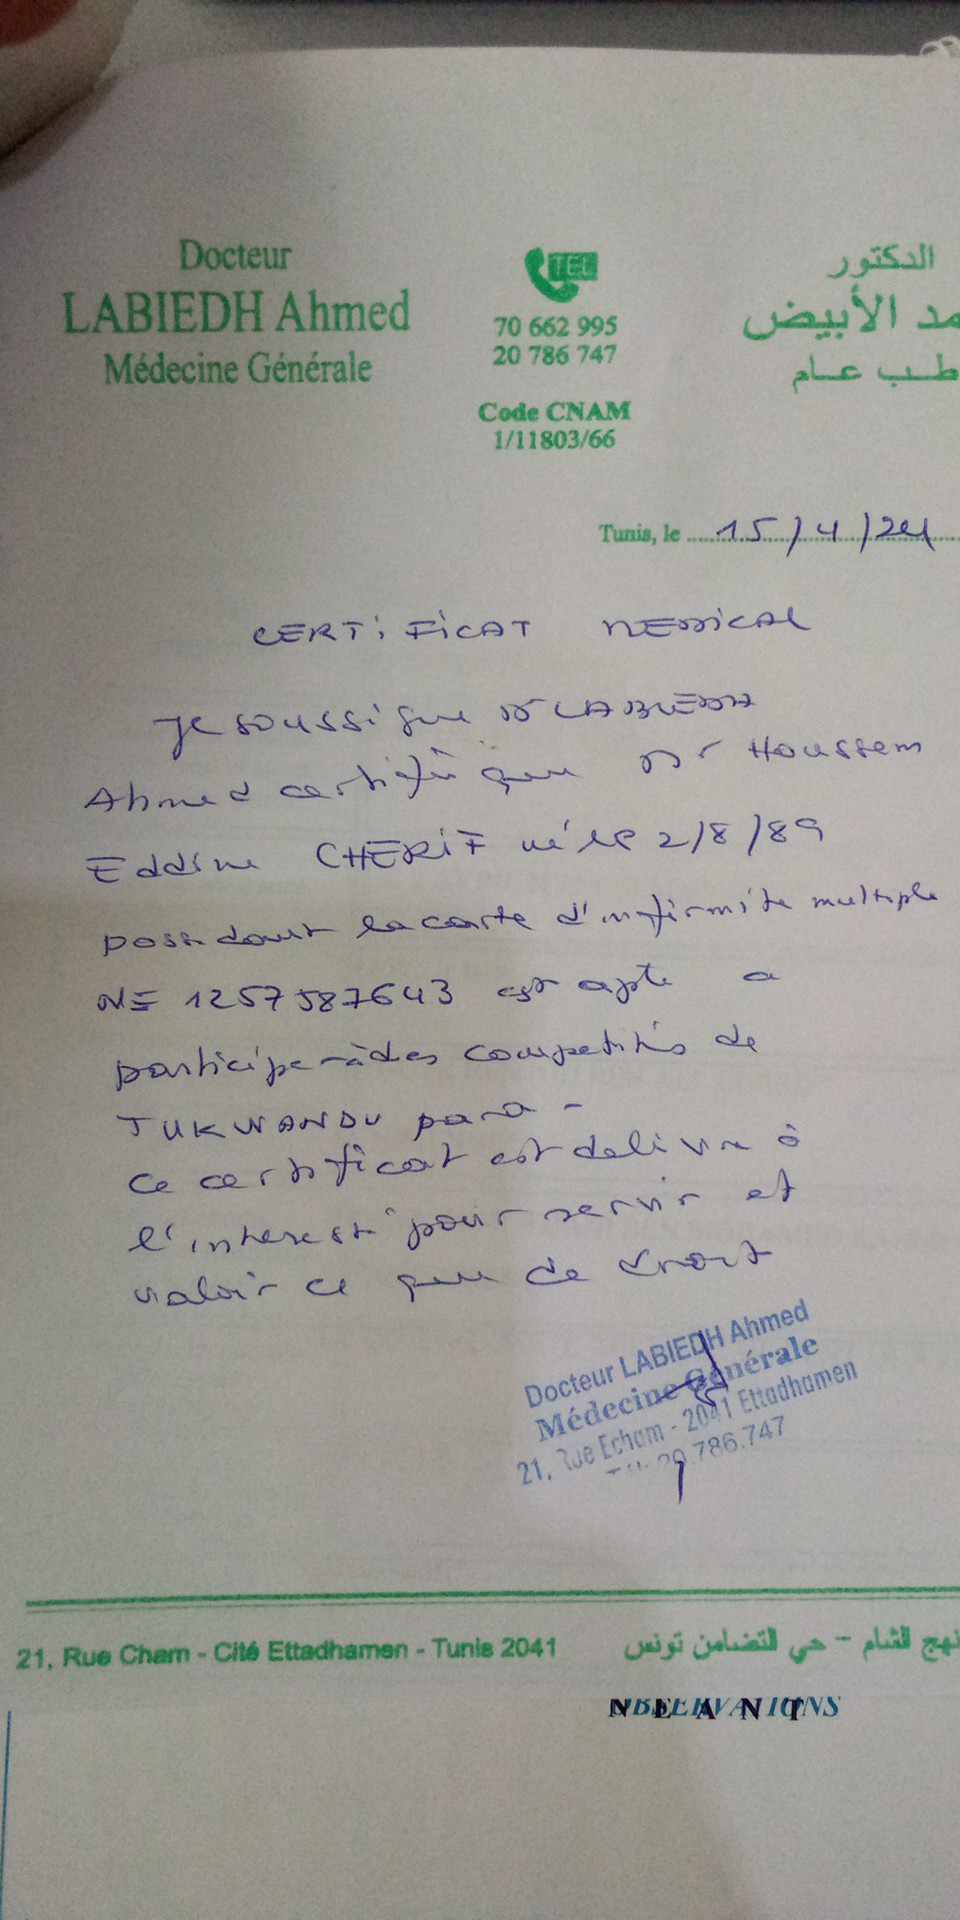 Docteur
LABIEDH Ahmed
Médecine Générale
TEL
70 662 995
20 786 747
Code CNAM
1/11803/66
الدكتور
مد الأبيض
طب عام
Tunis, le 15/4/24
CERTIFICAT MEDICAL
Je soussigne Dr LABIEDH
Ahmed certifie que Mr Houssem
Eddine CHERIF né le 2/8/89
possedant la carte d'infirmite multiple
N= 1257587643 est apte a
participer à des competitis de
TUKWANDU para -
Ce certificat est delivre à
l'interest pour servir et
valoir ce que de droit
Docteur LABIEDH Ahmed
Médecine Générale
21, Rue Echam - 2041 Ettadhamen
20.786.747
21, Rue Cham - Cité Ettadhamen - Tunis 2041
نهج الشام - حي التضامن تونس
OBSERVATIONS
NEANT